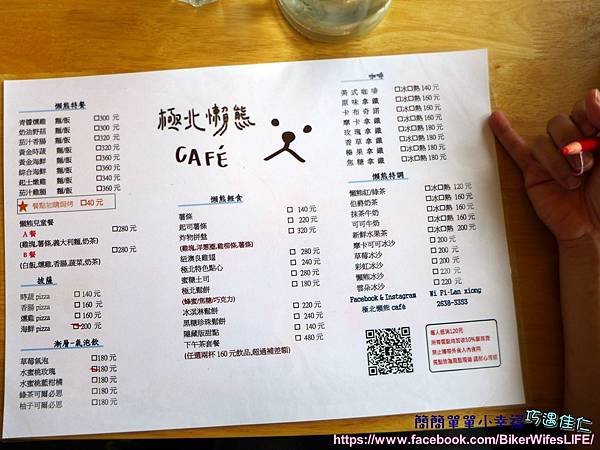 極北懶熊
CAFÉ
懶熊特餐
青醬燻雞 麵/飯 □300 元
奶油野菇 麵/飯 □300 元
茄汁香腸 麵/飯 □320 元
黃金時蔬 麵/飯 □320 元
黃金海鮮 麵/飯 □360 元
綜合海鮮 麵/飯 □360 元
起士燉雞 麵/飯
茄汁雞腿 麵/飯 □360 元
★餐點加購焗烤 □40 元
懶熊兒童餐
A 餐 □280 元
(雞塊,薯條,義大利麵,奶茶)
B 餐 □280 元
(白飯,燻雞,香腸,蔬菜,奶茶)
披薩
時蔬 pizza □140 元
香腸 pizza □160 元
燻雞 pizza □160 元
海鮮 pizza □200 元
漸層-氣泡飲
草莓氣泡 □180 元
水蜜桃玫瑰 □180 元
水蜜桃藍柑橘 □180 元
綠茶可爾必思 □180 元
柚子可爾必思 □180 元
懶熊輕食
薯條 □ 140 元
起司薯條 □ 220 元
炸物拼盤 □ 320 元
(雞塊,洋蔥圈,雞柳條,薯條)
紐澳良雞翅 □ 240 元
極北特色點心 □ 280 元
蜜糖土司 □ 160 元
極北鬆餅 □ 180 元
(蜂蜜/焦糖/巧克力)
冰淇淋鬆餅 □ 220 元
黑糖珍珠鬆餅 □ 240 元
隱藏版甜點 □ 280 元
下午茶套餐 □ 320 元
(任選兩杯 160 元飲品,超過補差額)
咖啡
美式咖啡 □冰□熱 140 元
原味拿鐵 □冰□熱 160 元
卡布奇諾 □冰□熱 160 元
摩卡拿鐵 □冰□熱 180 元
玫瑰拿鐵 □冰□熱 180 元
香草拿鐵 □冰□熱 180 元
榛果拿鐵 □冰□熱 180 元
焦糖拿鐵 □冰□熱 180 元
懶熊特調
懶熊紅/綠茶 □冰□熱 120 元
伯爵奶茶 □冰□熱 160 元
抹茶牛奶 □冰□熱 160 元
可可牛奶 □冰□熱 160 元
新鮮水果茶 □冰□熱 180 元
摩卡可可冰沙 □ 200 元
草莓冰沙 □ 200 元
彩虹冰沙 □ 220 元
懶熊冰沙 □ 220 元
雲朵冰沙 □ 220 元
Facebook & Instagram Wi Fi-Lan xiong
極北懶熊 café 2638-3353
每人低消120元
所有餐點均加收10%服務費
禁止攜帶外食入內食用
簡簡單單小幸福 巧遇佳仁
https://www.facebook.com/BikerWifesLIFE/